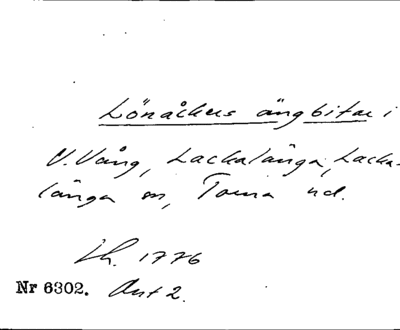 Lönåkers ängbitar i
V. Vång, Lackalänga, Lacka-
länga sn, Torna hd.
Lh. 1776
Nr 6302. Akt 2.